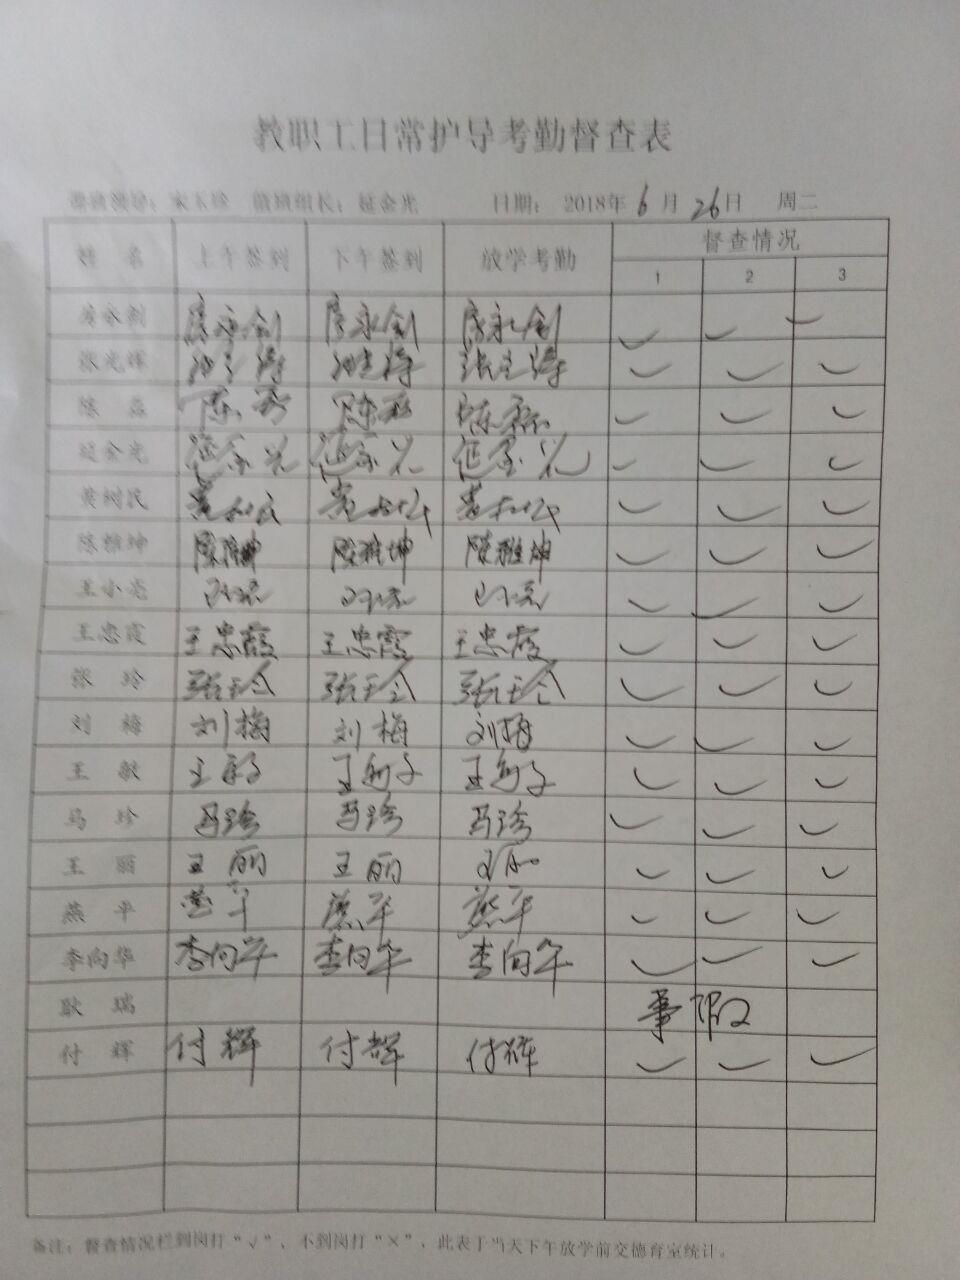 教职工日常护导考勤督查表
带班领导：宋玉珍 值班组长：延金光 日期： 2018年 6 月 26日 周二
姓 名 上午签到 下午签到 放学考勤 督查情况
1 2 3
房永剑 房永剑 房永剑 房永剑 ✓ ✓ ✓
张光辉 ✓ ✓ ✓
陈 磊 陈磊 陈磊 陈磊 ✓ ✓ ✓
延金光 延金光 延金光 延金光 ✓ ✓ ✓
黄树民 黄树民 黄树民 黄树民 ✓ ✓ ✓
陈雅坤 陈雅坤 陈雅坤 陈雅坤 ✓ ✓ ✓
王小亮 ✓ ✓ ✓
王忠霞 王忠霞 王忠霞 王忠霞 ✓ ✓ ✓
张 玲 张玲 张玲 张玲 ✓ ✓ ✓
刘 梅 刘梅 刘梅 刘梅 ✓ ✓ ✓
王 敏 王敏 王敏 王敏 ✓ ✓ ✓
马 珍 马珍 马珍 马珍 ✓ ✓ ✓
王 丽 王丽 王丽 王丽 ✓ ✓ ✓
燕 平 燕平 燕平 燕平 ✓ ✓ ✓
李向华 李向华 李向华 李向华 ✓ ✓ ✓
耿 瑞 事假
付 辉 付辉 付辉 付辉 ✓ ✓ ✓
备注：督查情况栏到岗打“√”，不到岗打“×”，此表于当天下午放学前交德育室统计。